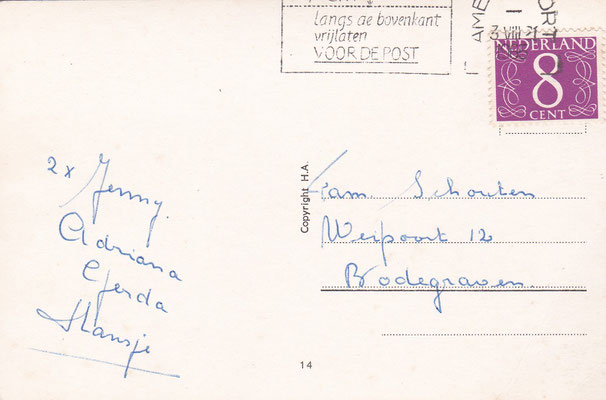 langs de bovenkant
vrijlaten
VOOR DE POST
AME
ORT
3 VIII
NEDERLAND
8
CENT
2x Jenny.
Adriana
Gerda
Hansje
Copyright H.A.
Fam. Schouten
Weipoort 12
Bodegraven.
14